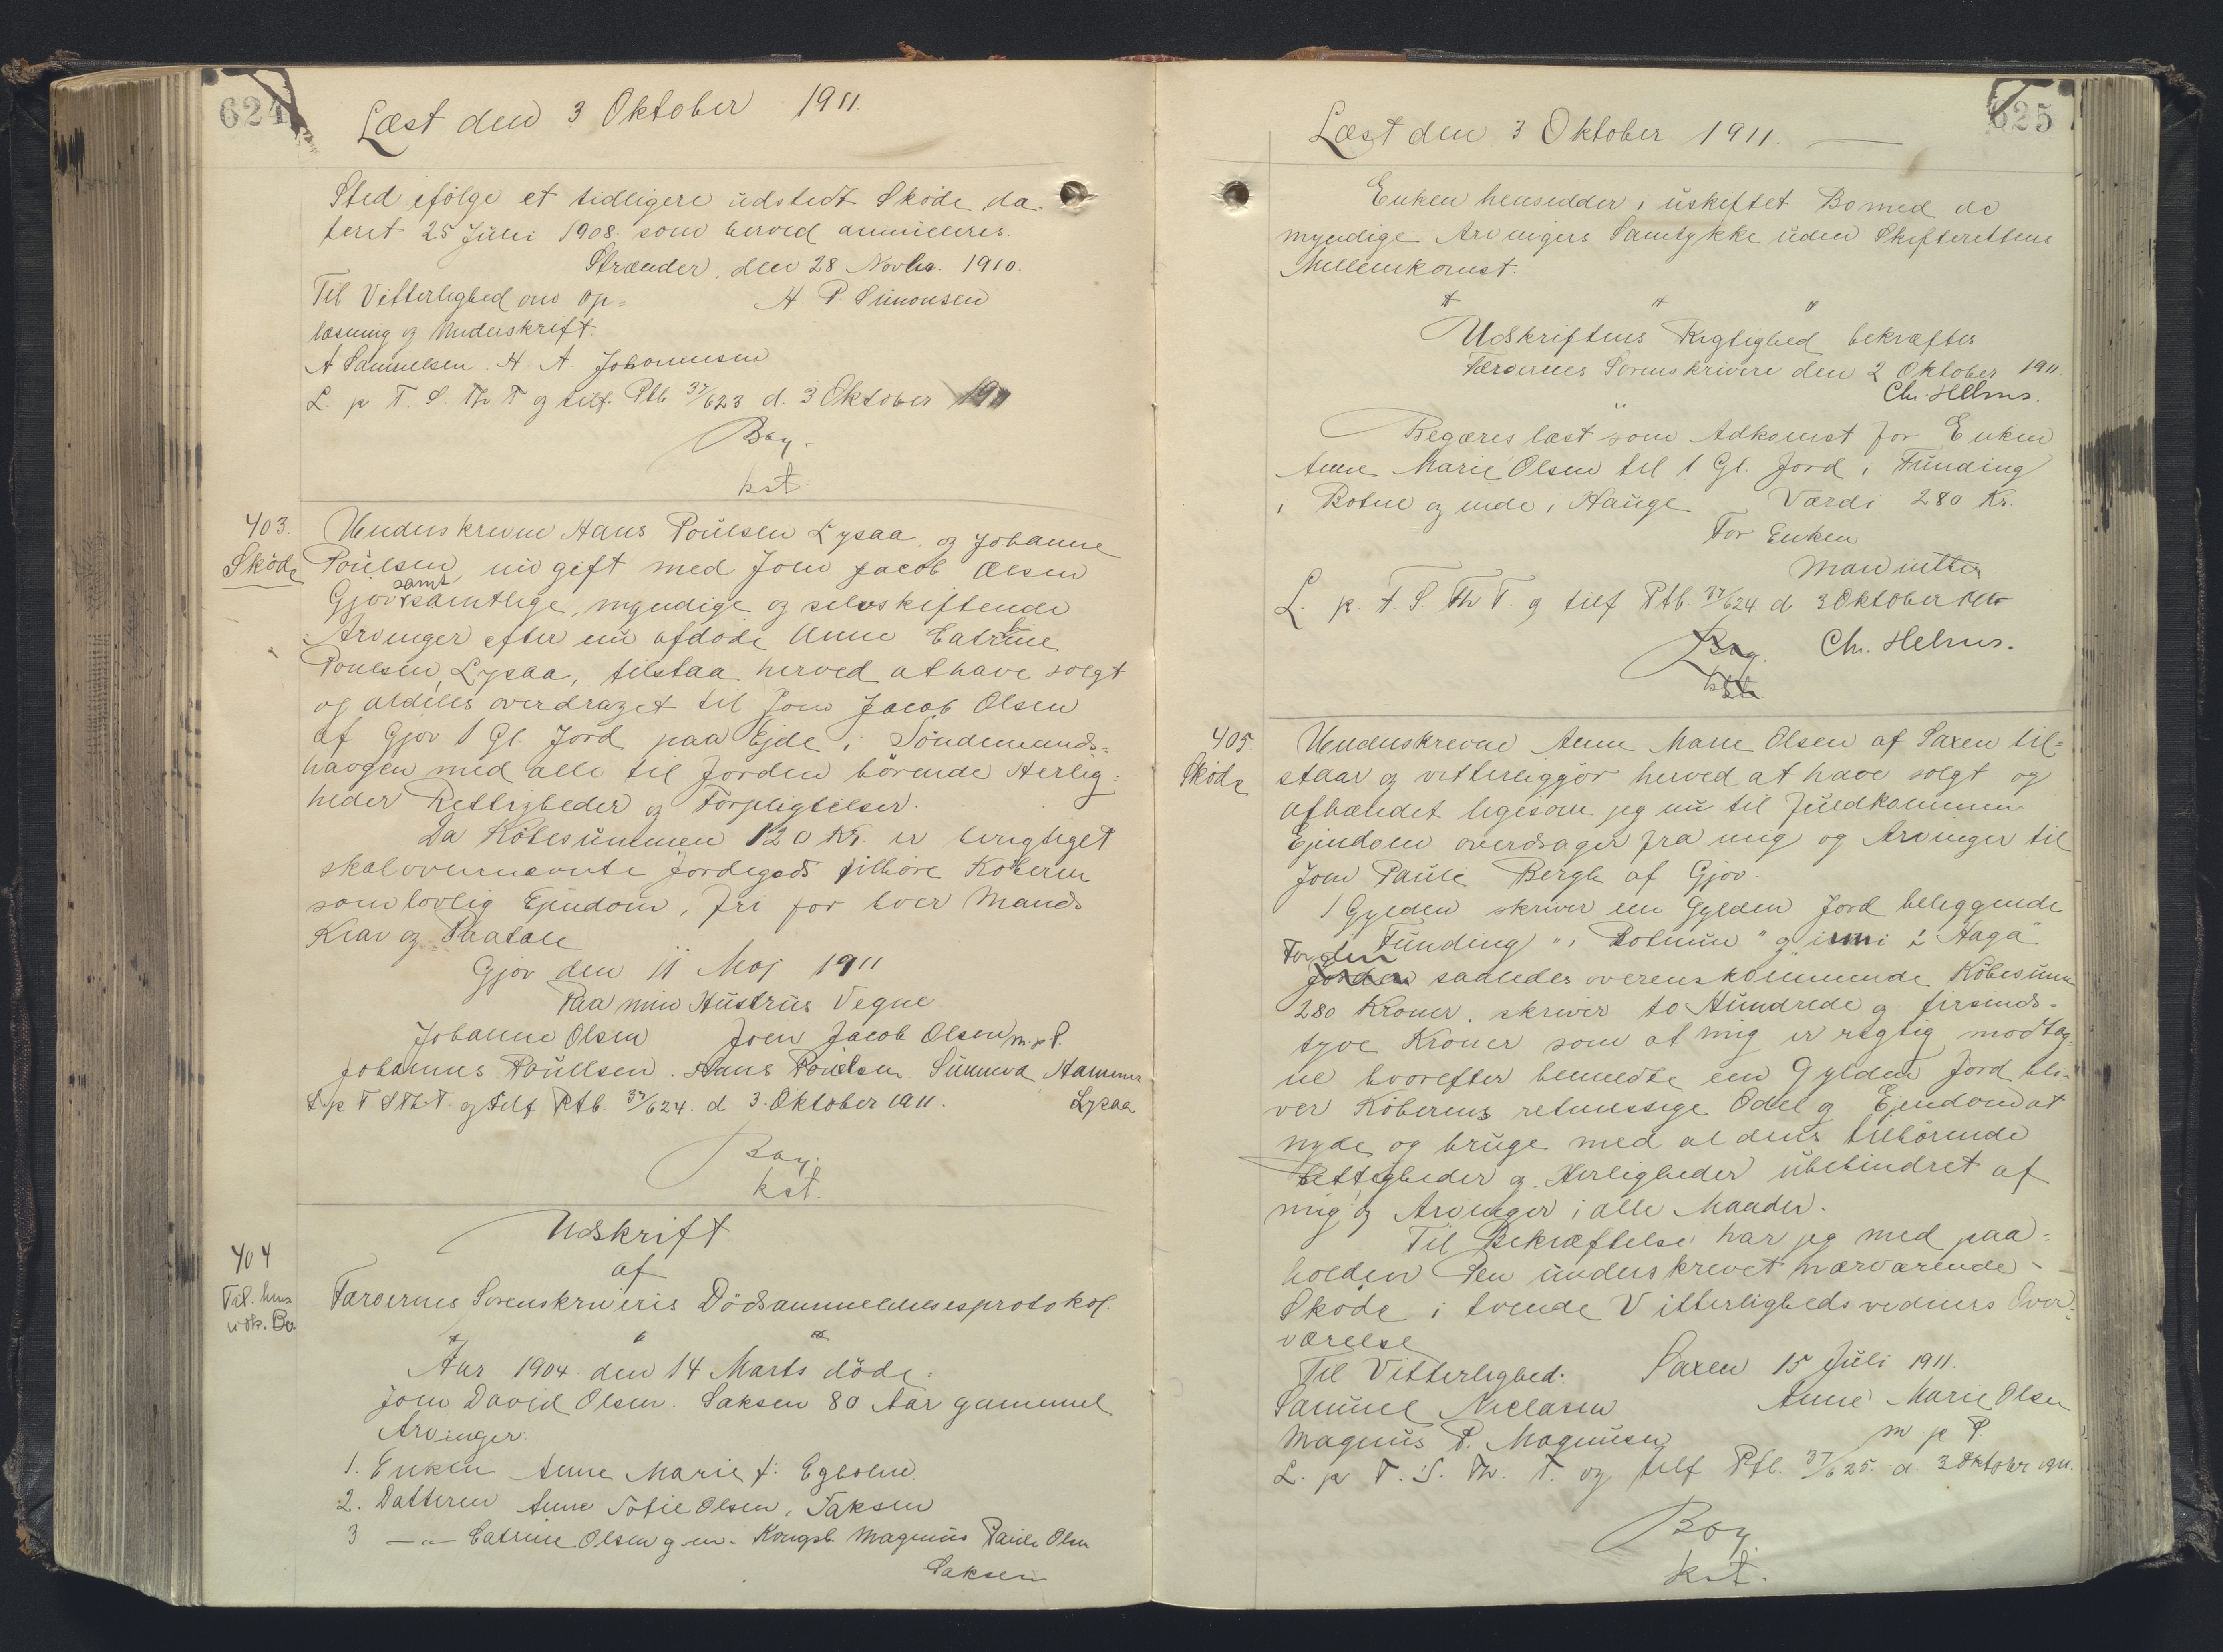 624
Læst den 3 Oktober 1911.
Sted ifölge et tidligere udstedt Sköde da-
teret 25 Juli 1908. som herved annulleres.
Strænder, den 28 Novbr. 1910.
Til Vitterlighed om op= H. P. Simonsen
læsning og Underskrift.
A Samuelsen. H. A. Johannesen
L. p T. S. Th T og tilf. Ptb 37/623 d. 3 Oktober 1911
Bay.
kst.
403. Underskrevne Hans Poulsen Lysaa, og Johanne
Sköde Poulsen nu gift med Joen Jacob Olsen
Gjov samt samtlige, myndige og selvskiftende
Arvinger efter nu afdöde Anne Catrine
Poulsen, Lysaa, tilstaa herved at have solgt
og aldeles overdraget til Joen Jacob Olsen
af Gjov 1 Gl. Jord paa Ejde i Söndemands=
haugen med alle til Jorden hörende Herlig=
heder Rettigheder og Forpligtelser.
Da Köbesummen 120 Kr. er berigtiget
skal ovennævnte Jordegods tilhöre Köberen
som lovlig Ejendom, fri for hver Mands
Krav og Paatale
Gjov den 11 Maj 1911
Paa min Hustrus Vegne
Johanne Olsen Joen Jacob Olsen m. p P.
Johannes Poulsen. Hans Poulsen Sunneva Hammer
L. p T S Th T. og tilf Ptb. 37/624. d 3. Oktober 1911. Lysaa
Bay.
kst.
404 Udskrift
af
Til. hens
i usk. Bo
Færoernes Sorenskriveris Dödsanmeldelsesprotokol.
" " "
Aar 1904 den 14 Marts döde:
Joen David Olsen. Saksen 80 Aar gammel
Arvinger:
1. Enken Anne Marie f. Egholm.
2. Datteren Anne Sofie Olsen, Saksen
3 —"— Catrine Olsen g. m. Kongsb. Magnus Pauli Olsen
Saksen
625
Læst den 3 Oktober 1911.
Enken hensidder i uskiftet Bo med de
myndige Arvingers Samtykke uden Skifterettens
Mellemkomst.
" " "
Udskriftens Rigtighed bekræftes
Færoernes Sorenskriveri den 2 Oktober 1911.
Chr. Helms.
Begæres læst som Adkomst for Enken
Anne Marie Olsen til 1 Gl. Jord i Funding
i Botne og inde i Hauge Værdi 280 Kr.
For Enken
L. p. T. S. Th T. og tilf Ptb. 37/624 d 3 Oktober 1911
Bay. Chr. Helms.
kst
405. Underskrevne Anne Marie Olsen af Saxen til=
Sköde staar og vitterliggjör herved at have solgt og
afhændet ligesom jeg nu til fuldkommen
Ejendom overdrager fra mig og Arvinger til
Joen Pauli Bergh af Gjov.
1 Gylden skriver een Gylden Jord beliggende
i Funding "i Botnun" og inni í Haga"
For den
Jorden saaledes overenskommende Köbesum
280 Kroner. skriver to Hundrede og firsinds-
tyve Kroner som af mig er rigtig modtag-
ne hvorefter bemeldte een Gylden Jord bli-
ver Köberens retmessige Odel og Ejendom at
nyde og bruge med al dens tilhörende
Rettigheder og Herligheder ubehindret af
mig og Arvinger i alle Maader.
Til Bekræftelse har jeg med paa=
holden Pen underskrevet nærværende
Sköde i tvende Vitterlighedsvidners Over=
værelse
Til Vitterlighed: Saxen 15 Juli 1911.
Samuel Niclasen Anne Marie Olsen
Magnus P. Magnusen m p P.
L. p T. S. Th. T. og tilf Ptb. 37/625. d. 3 Oktober 1911.
Bay
kst.